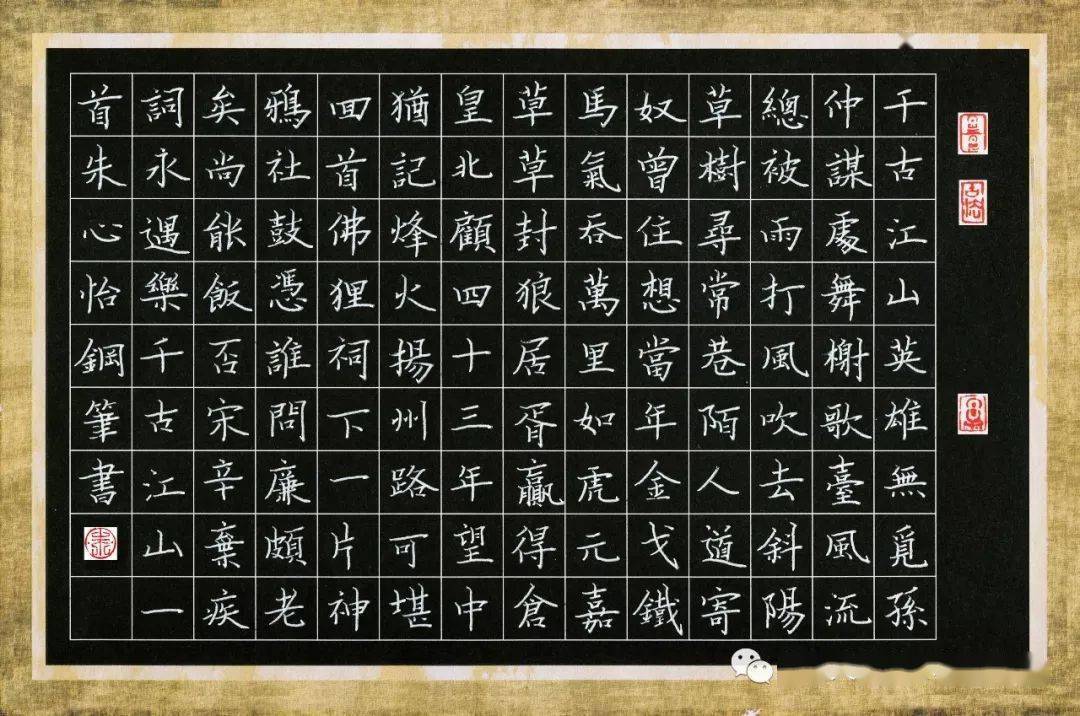 千古江山英雄無覓孫
仲謀處舞榭歌臺風流
總被雨打風吹去斜陽
草樹尋常巷陌人道寄
奴曾住想當年金戈鐵
馬氣吞萬里如虎元嘉
草草封狼居胥贏得倉
皇北顧四十三年望中
猶記烽火揚州路可堪
囬首佛狸祠下一片神
鴉社鼓憑誰問廉頗老
矣尚能飯否宋辛棄疾
詞永遇樂千古江山一
首朱心怡鋼筆書